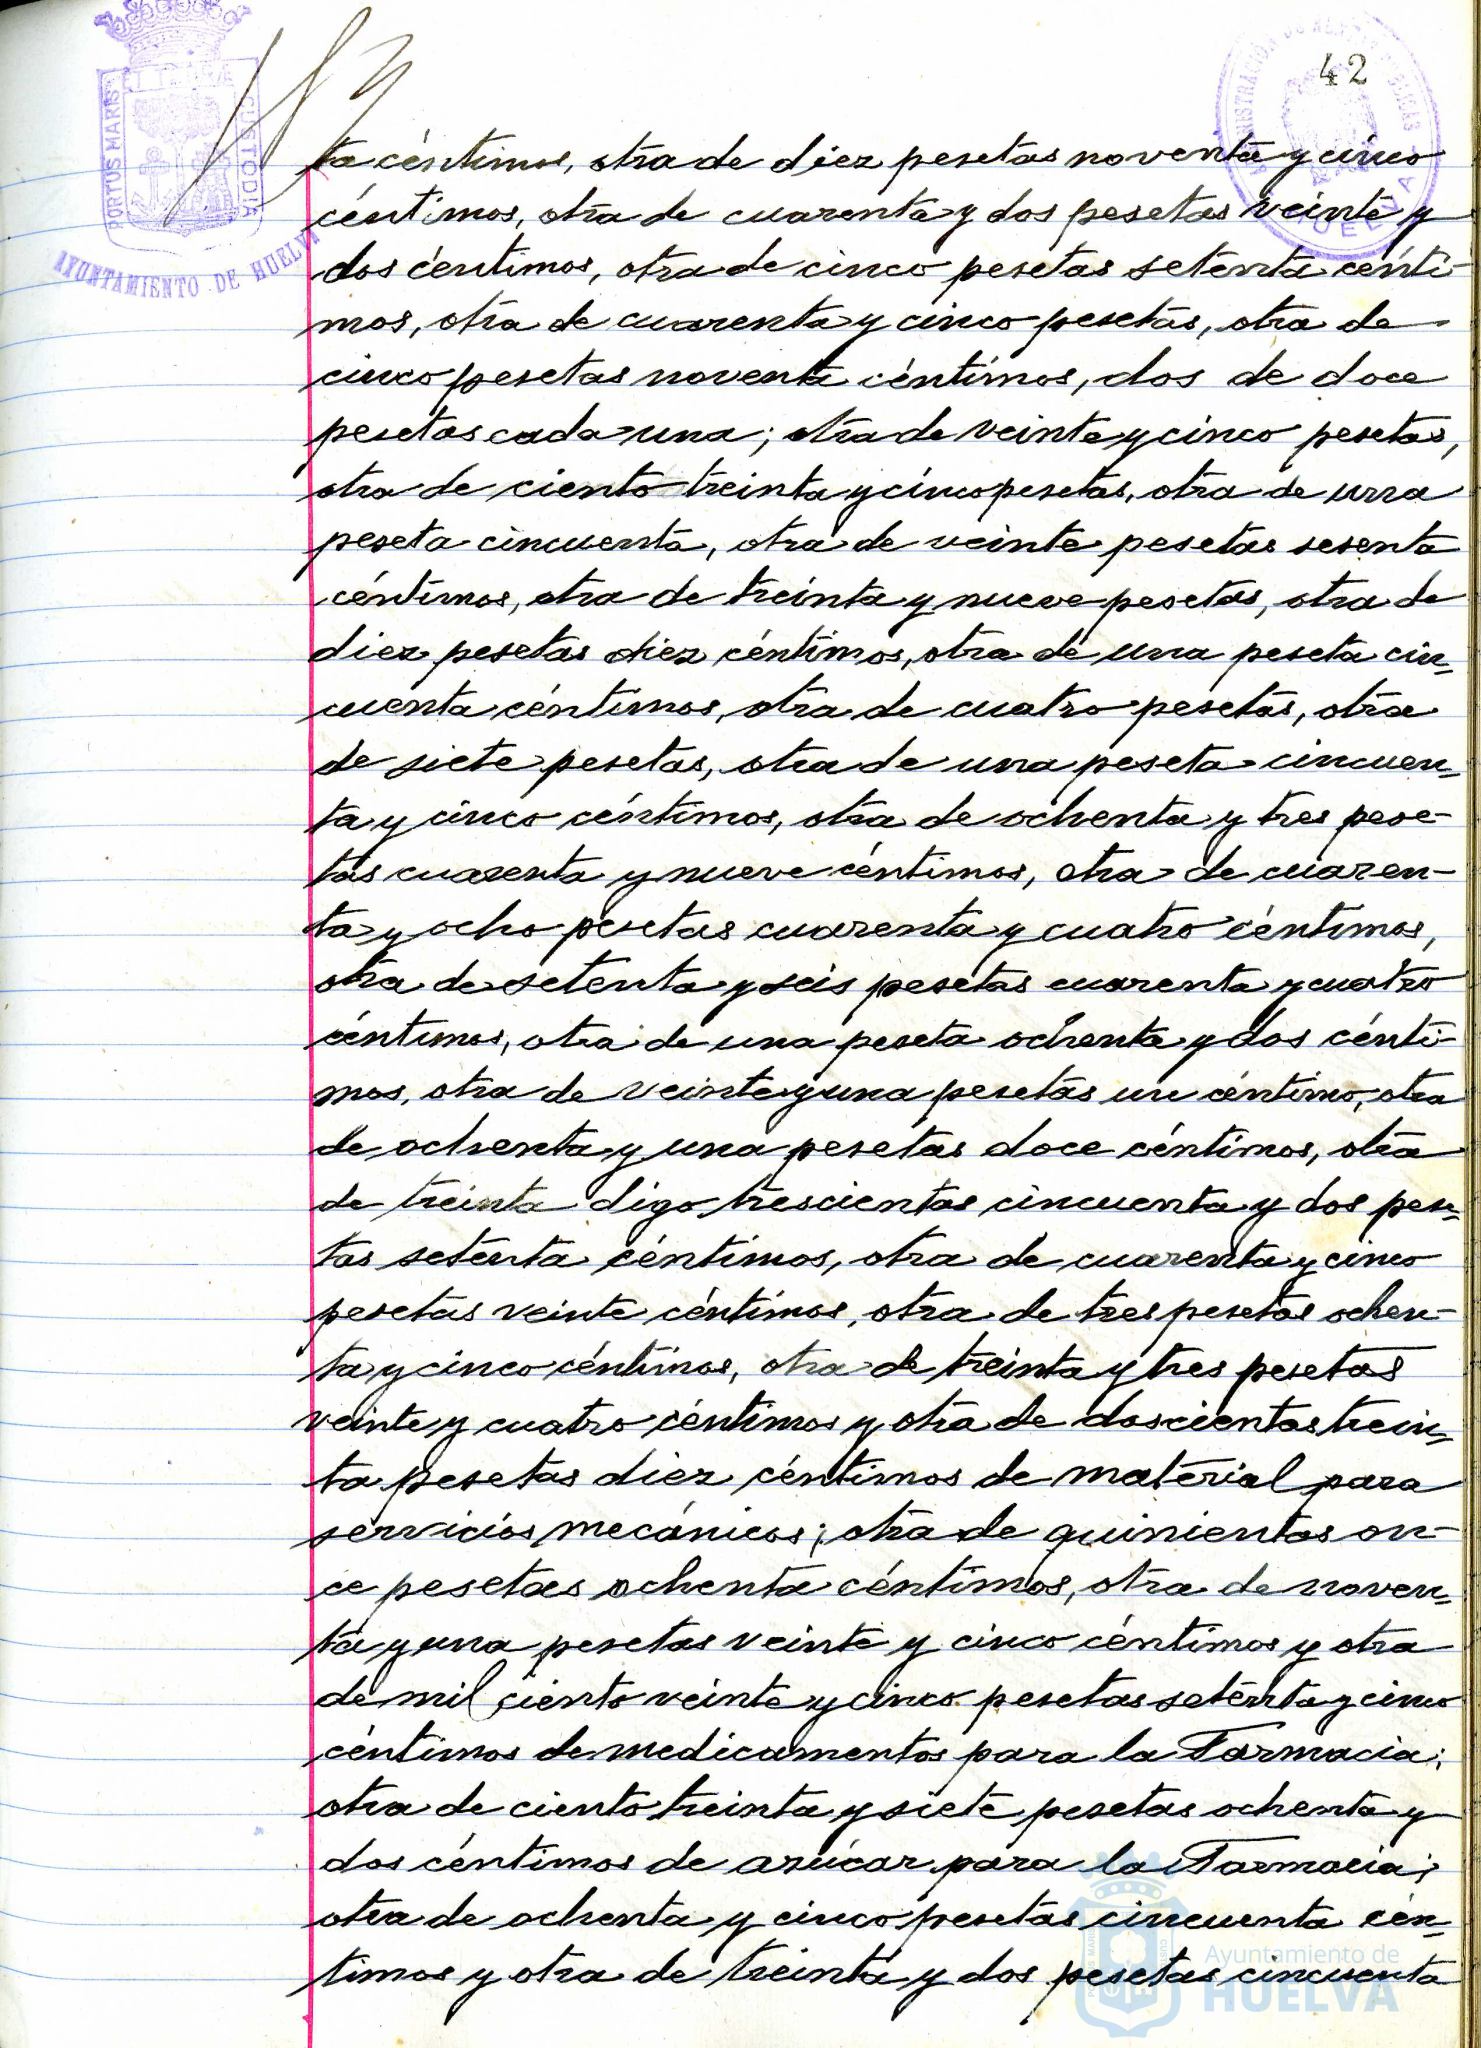 42
PORTUS MARIS ET TERRÆ CUSTODIA
AYUNTAMIENTO DE HUELVA
HUELVA
ta céntimos, otra de diez pesetas noventa y cinco
céntimos, otra de cuarenta y dos pesetas veinte y
dos céntimos, otra de cinco pesetas setenta cénti-
mos, otra de cuarenta y cinco pesetas, otra de
cinco pesetas noventa céntimos, dos de doce
pesetas cada una; otra de veinte y cinco pesetas,
otra de ciento treinta y cinco pesetas, otra de una
peseta cincuenta, otra de veinte pesetas sesenta
céntimos, otra de treinta y nueve pesetas, otra de
diez pesetas diez céntimos, otra de una peseta cin-
cuenta céntimos, otra de cuatro pesetas, otra
de siete pesetas, otra de una peseta cincuen-
ta y cinco céntimos, otra de ochenta y tres pese-
tas cuarenta y nueve céntimos, otra de cuaren-
ta y ocho pesetas cuarenta y cuatro céntimos,
otra de setenta y seis pesetas cuarenta y cuatro
céntimos, otra de una peseta ochenta y dos cénti-
mos, otra de veinte y una pesetas un céntimo, otra
de ochenta y una pesetas doce céntimos, otra
de treinta digo trescientas cincuenta y dos pese-
tas setenta céntimos, otra de cuarenta y cinco
pesetas veinte céntimos, otra de tres pesetas ochen-
ta y cinco céntimos, otra de treinta y tres pesetas
veinte y cuatro céntimos y otra de doscientas trein-
ta pesetas diez céntimos de material para
servicios mecánicos; otra de quinientas on-
ce pesetas ochenta céntimos, otra de noven-
ta y una pesetas veinte y cinco céntimos y otra
de mil ciento veinte y cinco pesetas setenta y cinco
céntimos de medicamentos para la Farmacia;
otra de ciento treinta y siete pesetas ochenta y
dos céntimos de azúcar para la Farmacia;
otra de ochenta y cinco pesetas cincuenta cén-
timos y otra de treinta y dos pesetas cincuenta
Ayuntamiento de
HUELVA